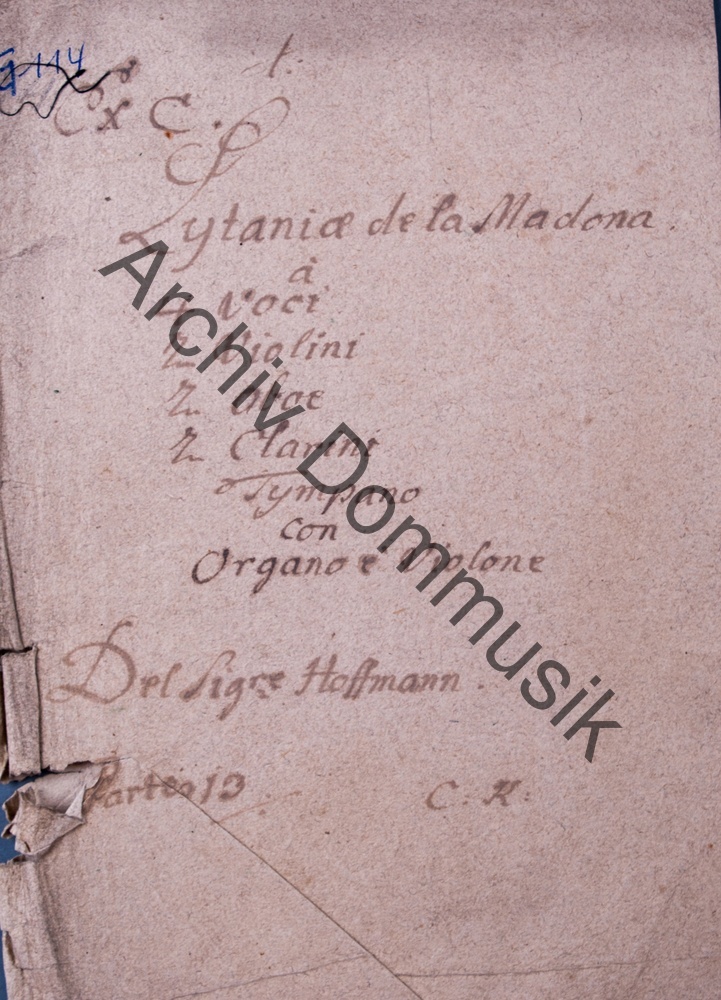 G 114
1.
Ex C.
Lytaniæ de la Madona.
à
4 Voci
2 Violini
2 Oboe
2 Clarini
Tympano
con
Organo e Violone
Del Sigre Hoffmann.
Partes 13
C. K.
Archiv Dommusik